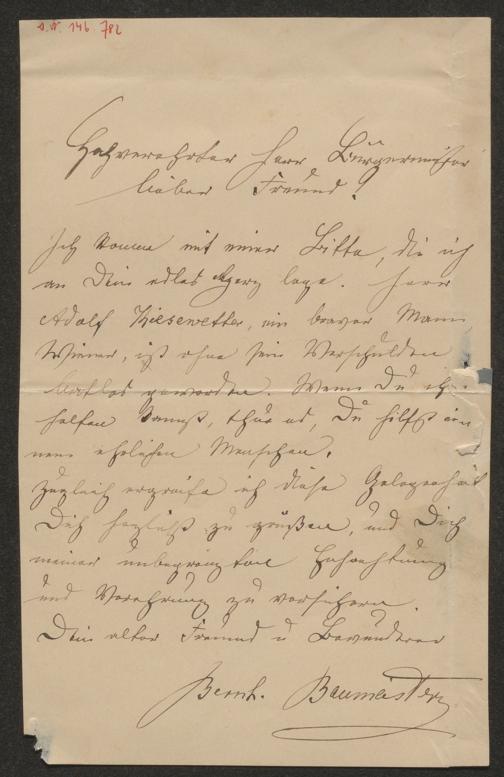 I.N. 146.782
Hochverehrter Herr Bürgermeister
lieber Freund!
Ich komme mit einer Bitte, die ich
an Dein edles Herz lege. Herr
Adolf Kiesewetter, ein braver Mann
Wiener, ist ohne sein Verschulden
brotlos geworden. Wenn Du ihm
helfen kannst, thue es, Du hilfst ein
nem ehrlichen Menschen.
Zugleich ergreife ich diese Gelegenheit
Dich herzlichst zu grüßen, und Dich
meiner unbegrenzten Hochachtung
und Verehrung zu versichern.
Dein alter Freund u Bewunderer
Bernh. Baumeister